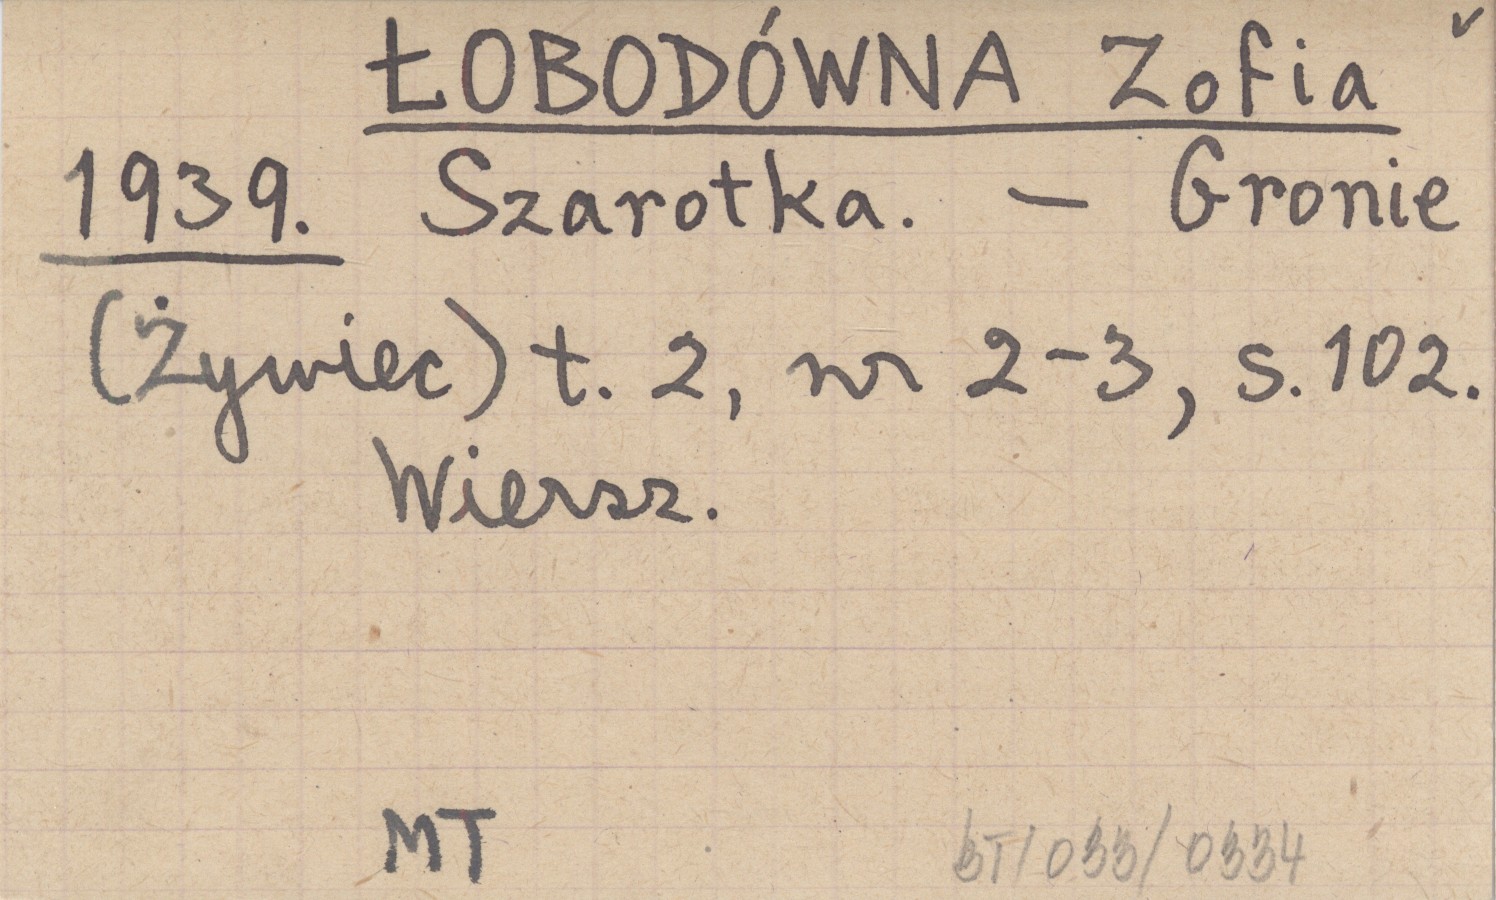 ŁOBODÓWNA Zofia ✓
1939. Szarotka. – Gronie
(Żywiec) t. 2, nr 2-3, s. 102.
Wiersz.
MT BT/033/0334